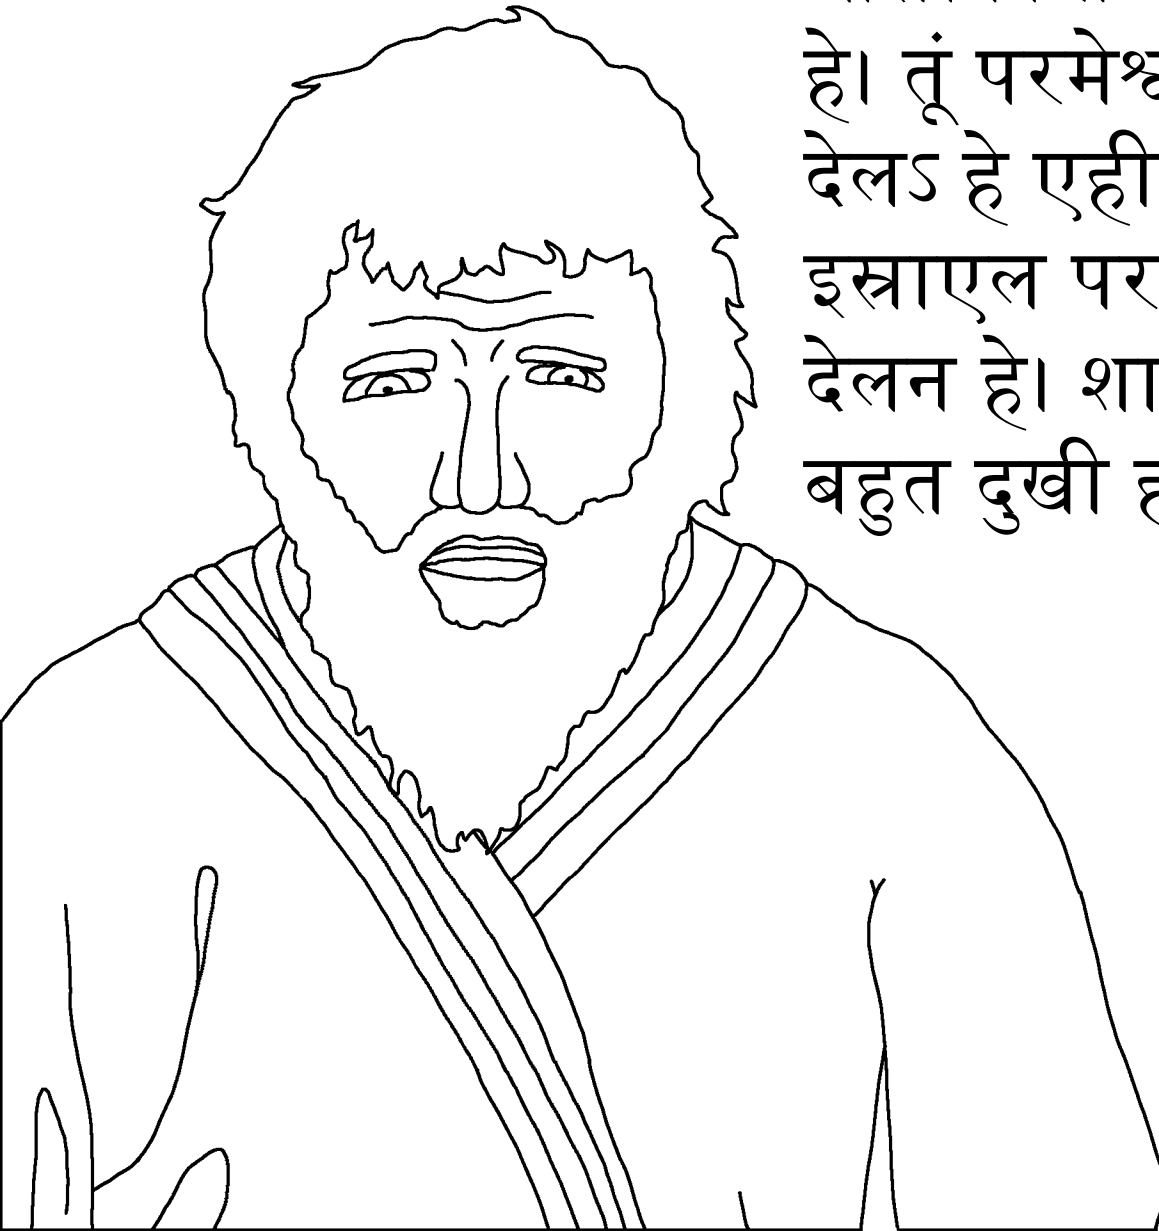 हे। तूं
देलऽ हे एही
इस्राएल पर
देलन हे।
बहुत दुखी